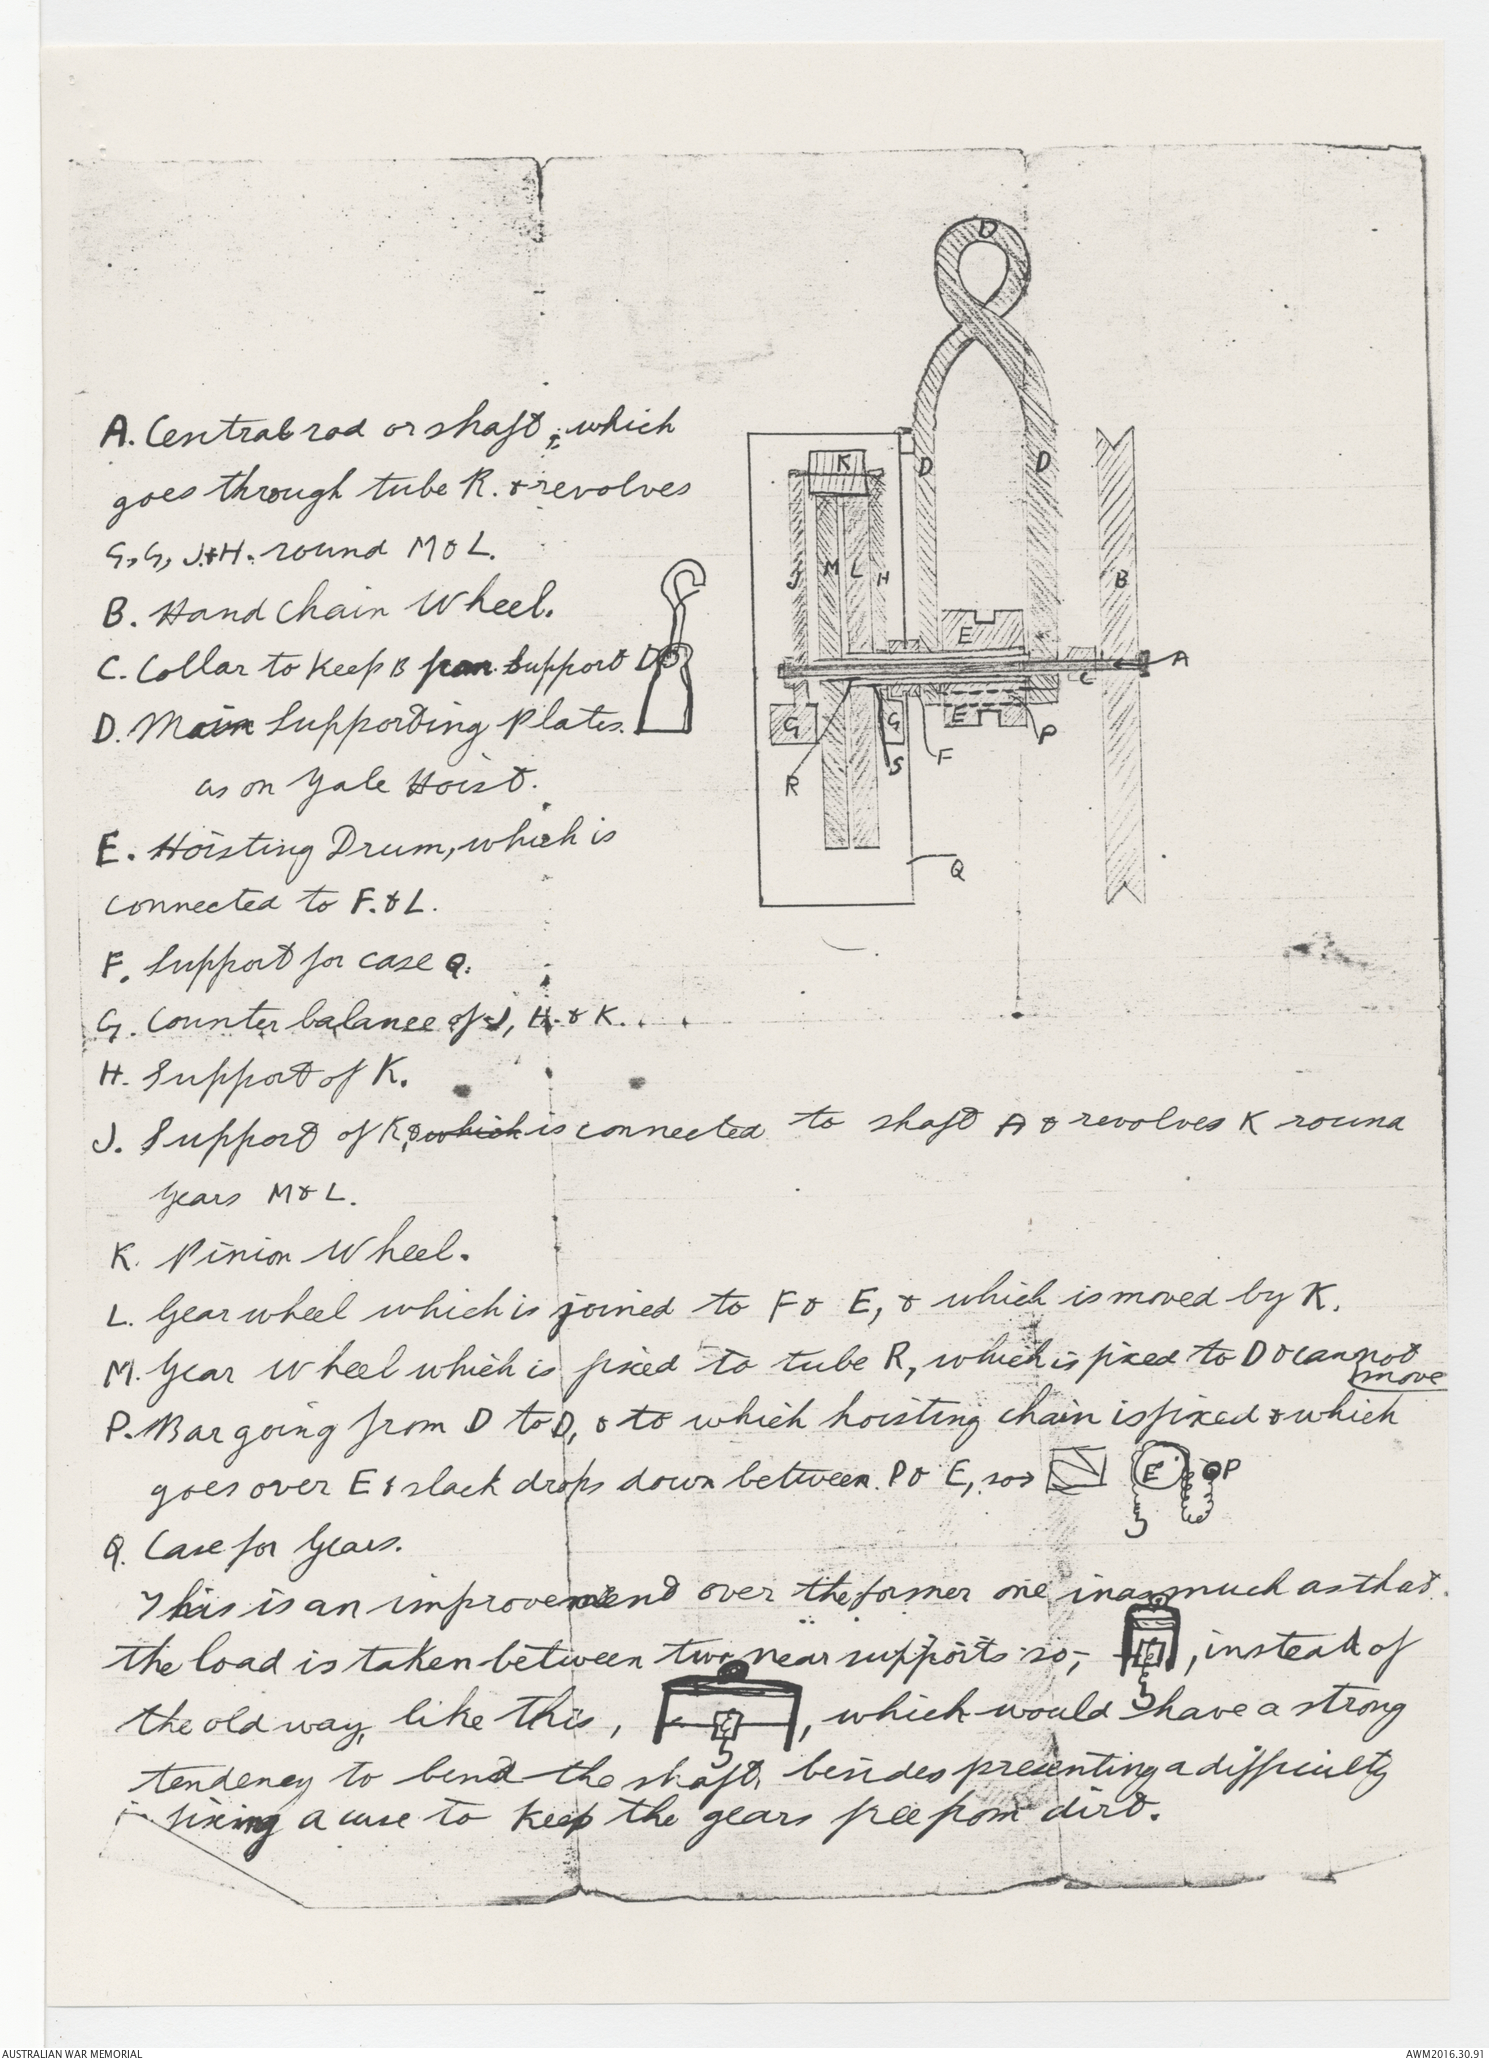 D
K
D
D
J
M
L
H
B
E
A
C
G
G
E
P
S
F
R
Q
A. Central rod or shaft, which
goes through tube R. & revolves
G, G, J. & H. round M & L.
B. Hand Chain Wheel.
C. Collar to keep B from Support D
D. Main Supporting Plates.
as on Yale Hoist.
E. Hoisting Drum, which is
connected to F. & L.
F. Support for case Q.
G. Counter balance of J, H. & K.
H. Support of K.
J. Support of K, & which is connected to shaft A & revolves K round
gears M & L.
K. Pinion Wheel.
L. Gear wheel which is joined to F & E, & which is moved by K.
M. Gear Wheel which is fixed to tube R, which is fixed to D & cannot
move
P. Bar going from D to D, & to which hoisting chain is fixed & which
goes over E & slack drops down between P & E, so E P
Q. Case for Gears.
This is an improvement over the former one inasmuch as that
the load is taken between two near supports so,- E, instead of
the old way, like this, E, which would have a strong
tendency to bend the shaft, besides presenting a difficulty
in fixing a case to keep the gears free from dirt.
AUSTRALIAN WAR MEMORIAL
AWM2016.30.91